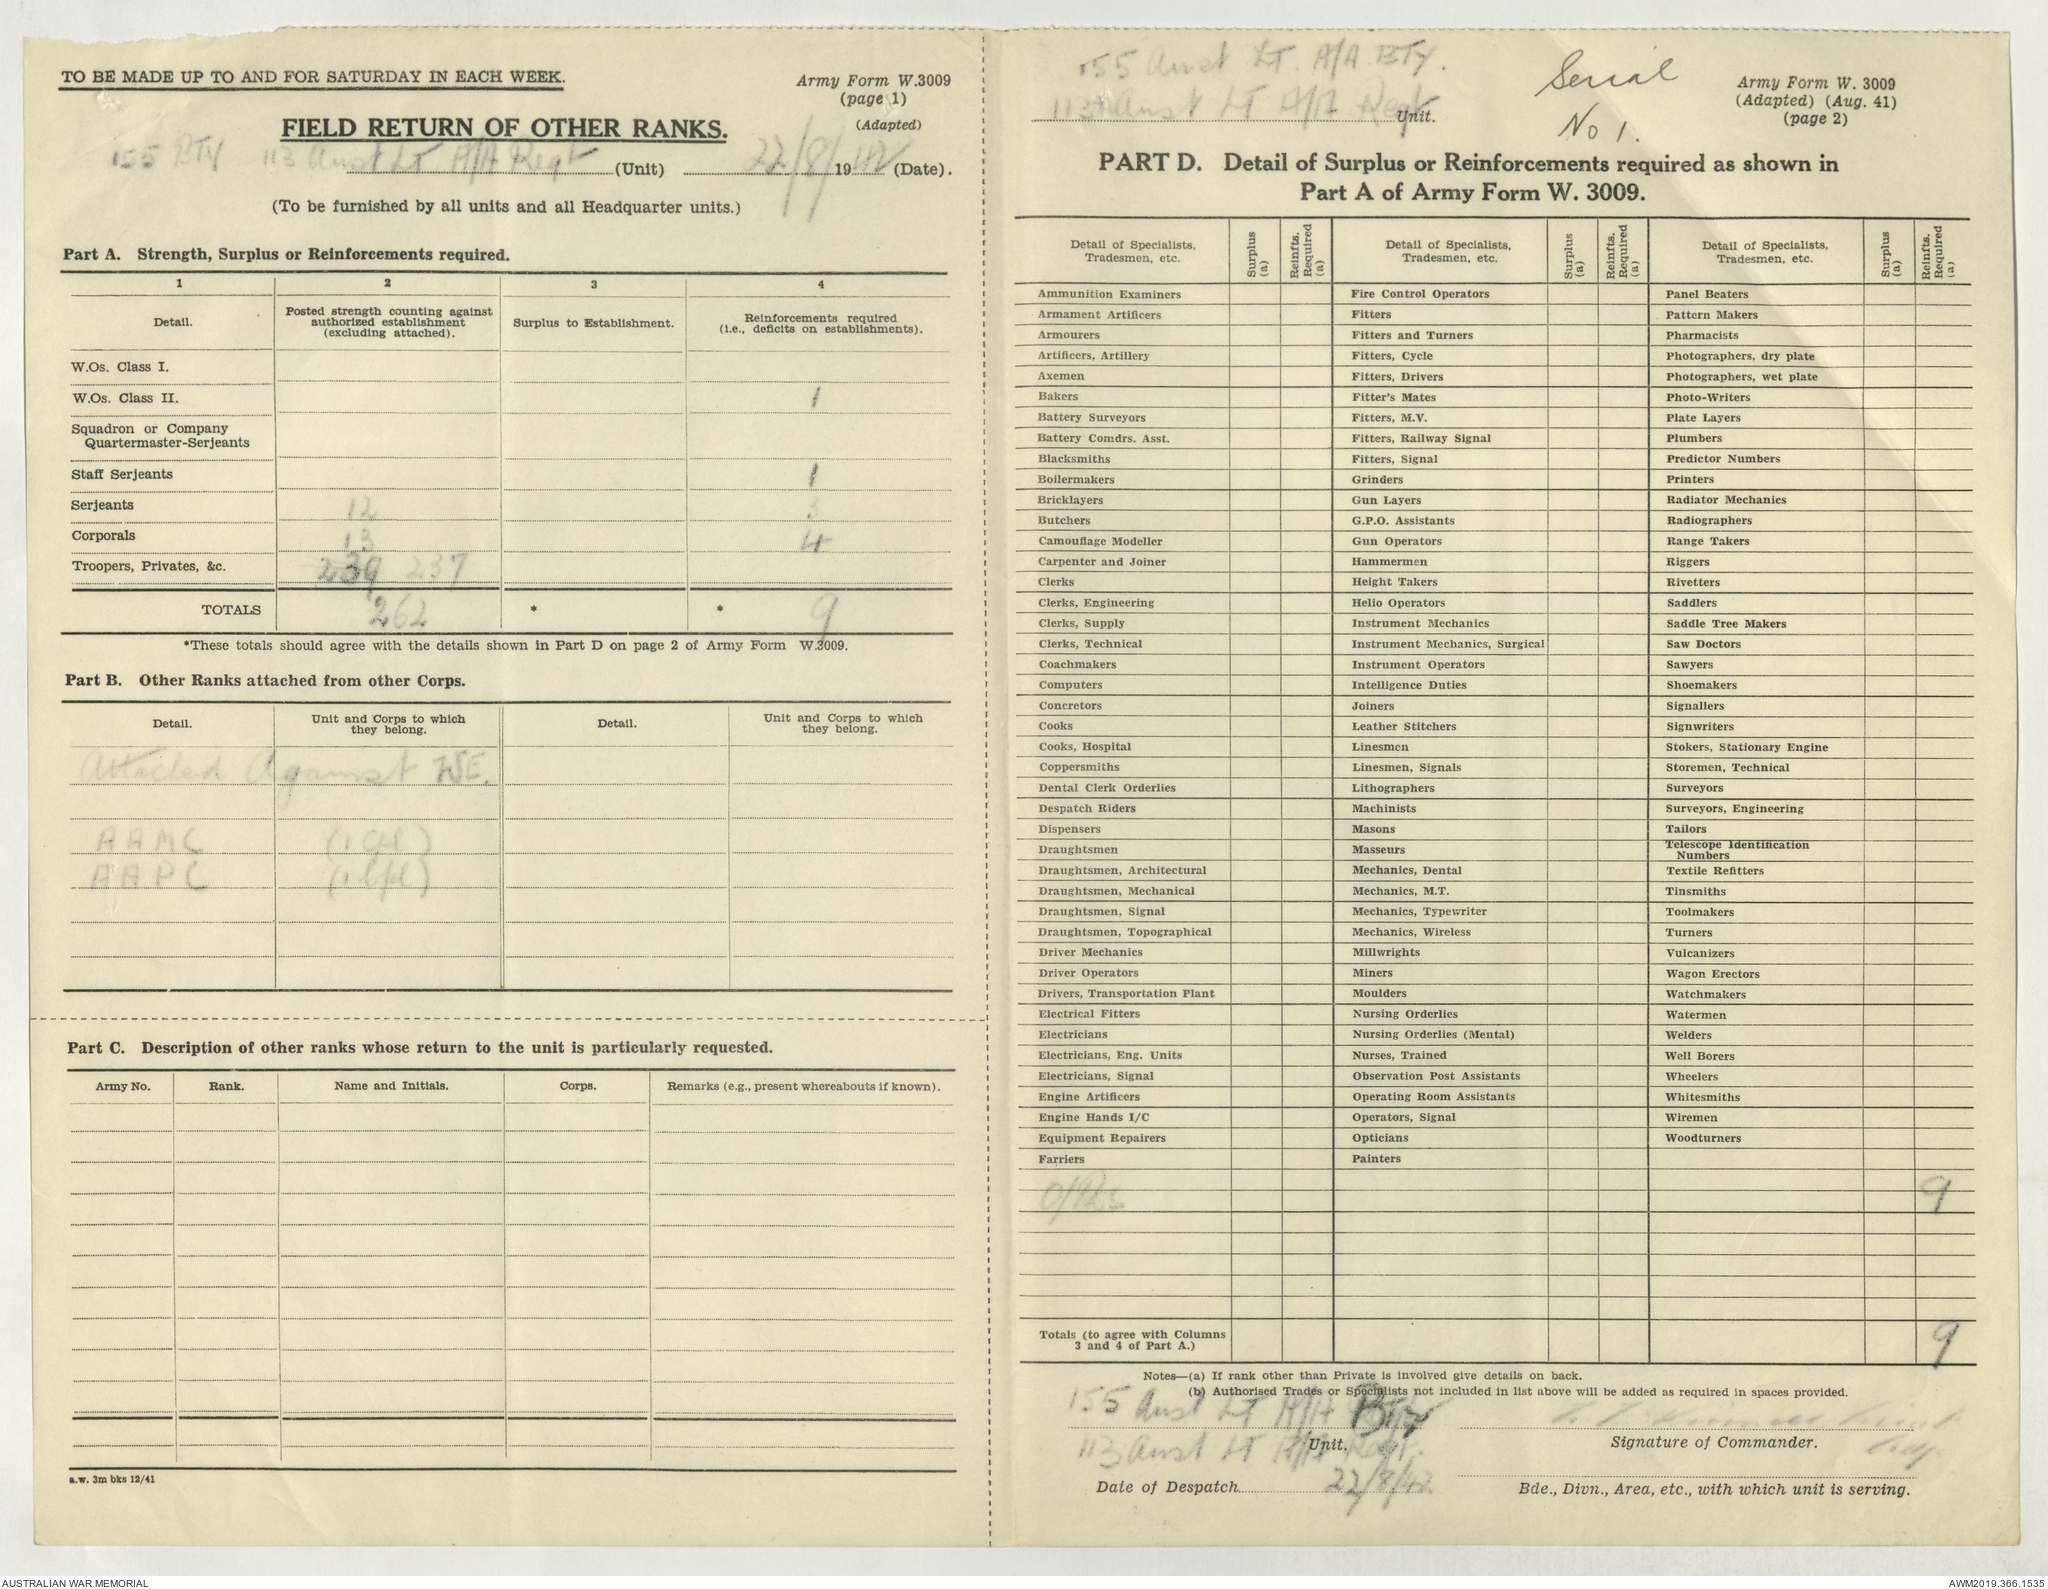 TO BE MADE UP TO AND FOR SATURDAY IN EACH WEEK.
Army Form W.3009
(page 1)
(Adapted)
FIELD RETURN OF OTHER RANKS.
155 BTY 113 Aust Lt A/A Regt (Unit) 22/8/1942 (Date).
(To be furnished by all units and all Headquarter units.)
Part A. Strength, Surplus or Reinforcements required.
1 2 3 4
Detail. Posted strength counting against authorized establishment (excluding attached). Surplus to Establishment. Reinforcements required (i.e., deficits on establishments).
W.Os. Class I.
W.Os. Class II. 1
Squadron or Company
Quartermaster-Serjeants
Staff Serjeants 1
Serjeants 12 3
Corporals 13 4
Troopers, Privates, &c. 239 237
TOTALS 262 * * 9
*These totals should agree with the details shown in Part D on page 2 of Army Form W.3009.
Part B. Other Ranks attached from other Corps.
Detail. Unit and Corps to which they belong. Detail. Unit and Corps to which they belong.
Attached Against WE.
AAMC (1 Cpl)
AAPC (1 Cpl)
Part C. Description of other ranks whose return to the unit is particularly requested.
Army No. Rank. Name and Initials. Corps. Remarks (e.g., present whereabouts if known).
a.w. 3m bks 12/41
155 Aust Lt. A/A BTY.
113 Aust Lt A/A Regt Unit.
Serial
No 1.
Army Form W. 3009
(Adapted) (Aug. 41)
(page 2)
PART D. Detail of Surplus or Reinforcements required as shown in
Part A of Army Form W. 3009.
Detail of Specialists, Tradesmen, etc. Surplus (a) Reinfts. Required (a) Detail of Specialists, Tradesmen, etc. Surplus (a) Reinfts. Required (a) Detail of Specialists, Tradesmen, etc. Surplus (a) Reinfts. Required (a)
Ammunition Examiners Fire Control Operators Panel Beaters
Armament Artificers Fitters Pattern Makers
Armourers Fitters and Turners Pharmacists
Artificers, Artillery Fitters, Cycle Photographers, dry plate
Axemen Fitters, Drivers Photographers, wet plate
Bakers Fitter's Mates Photo-Writers
Battery Surveyors Fitters, M.V. Plate Layers
Battery Comdrs. Asst. Fitters, Railway Signal Plumbers
Blacksmiths Fitters, Signal Predictor Numbers
Boilermakers Grinders Printers
Bricklayers Gun Layers Radiator Mechanics
Butchers G.P.O. Assistants Radiographers
Camouflage Modeller Gun Operators Range Takers
Carpenter and Joiner Hammermen Riggers
Clerks Height Takers Rivetters
Clerks, Engineering Helio Operators Saddlers
Clerks, Supply Instrument Mechanics Saddle Tree Makers
Clerks, Technical Instrument Mechanics, Surgical Saw Doctors
Coachmakers Instrument Operators Sawyers
Computers Intelligence Duties Shoemakers
Concretors Joiners Signallers
Cooks Leather Stitchers Signwriters
Cooks, Hospital Linesmen Stokers, Stationary Engine
Coppersmiths Linesmen, Signals Storemen, Technical
Dental Clerk Orderlies Lithographers Surveyors
Despatch Riders Machinists Surveyors, Engineering
Dispensers Masons Tailors
Draughtsmen Masseurs Telescope Identification Numbers
Draughtsmen, Architectural Mechanics, Dental Textile Refitters
Draughtsmen, Mechanical Mechanics, M.T. Tinsmiths
Draughtsmen, Signal Mechanics, Typewriter Toolmakers
Draughtsmen, Topographical Mechanics, Wireless Turners
Driver Mechanics Millwrights Vulcanizers
Driver Operators Miners Wagon Erectors
Drivers, Transportation Plant Moulders Watchmakers
Electrical Fitters Nursing Orderlies Watermen
Electricians Nursing Orderlies (Mental) Welders
Electricians, Eng. Units Nurses, Trained Well Borers
Electricians, Signal Observation Post Assistants Wheelers
Engine Artificers Operating Room Assistants Whitesmiths
Engine Hands I/C Operators, Signal Wiremen
Equipment Repairers Opticians Woodturners
Farriers Painters
O/Rks 9
Totals (to agree with Columns 3 and 4 of Part A.) 9
Notes—(a) If rank other than Private is involved give details on back.
(b) Authorised Trades or Specialists not included in list above will be added as required in spaces provided.
155 Aust Lt A/A Bty
113 Aust Lt A/A Regt.
Unit.
Signature of Commander.
Date of Despatch 22/8/42
Bde., Divn., Area, etc., with which unit is serving.
AUSTRALIAN WAR MEMORIAL
AWM2019.366.1535